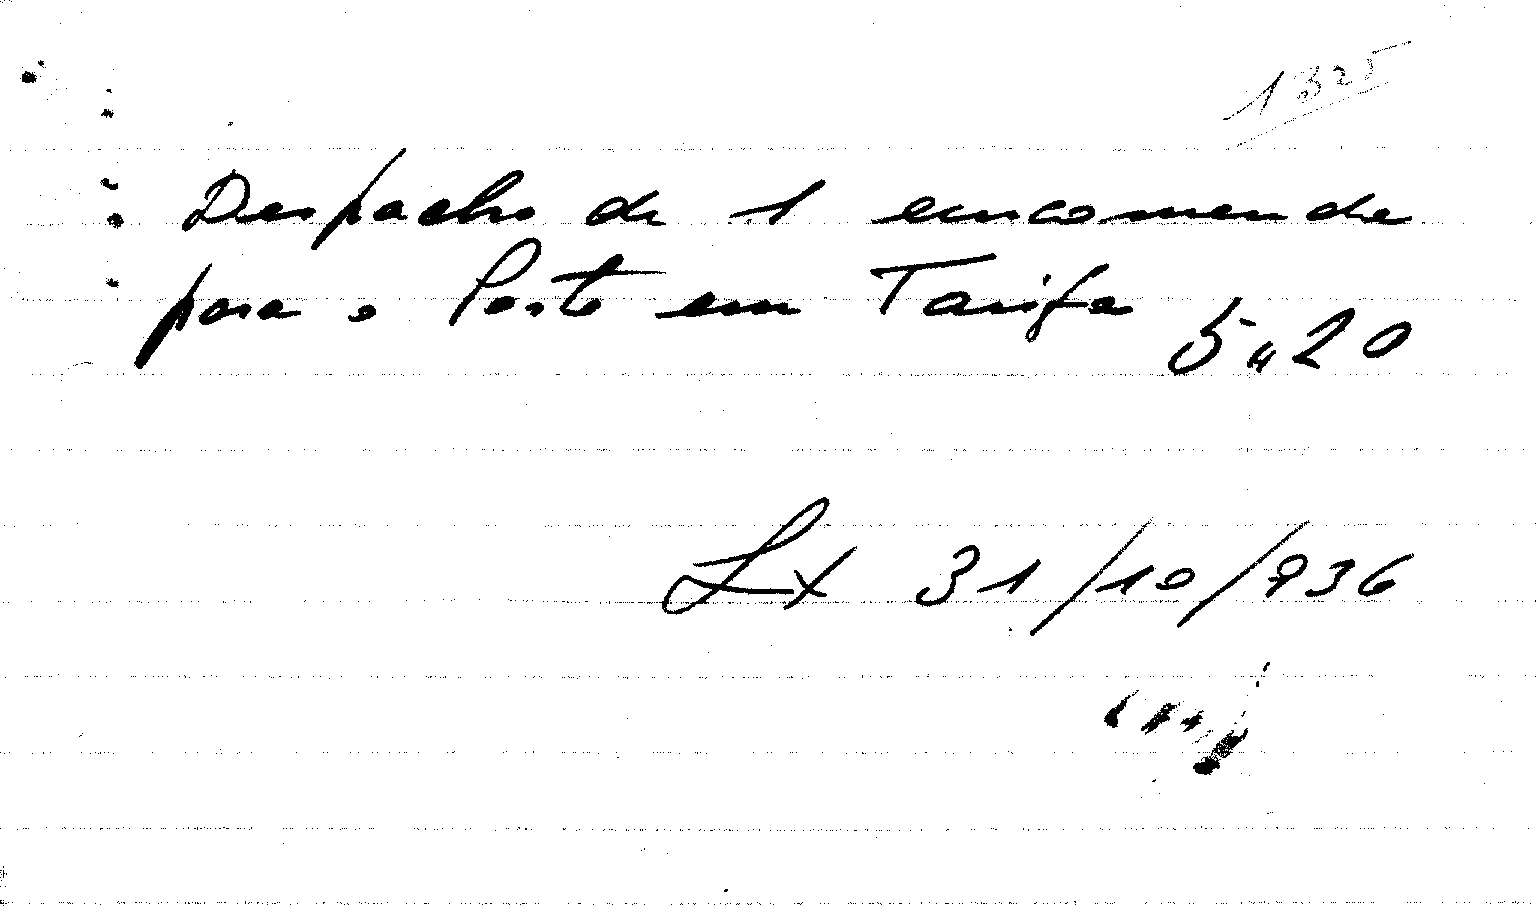 1325
Despacho de 1 encomenda
para o Porto em Tarifa
5,,20
Lx 31/10/936